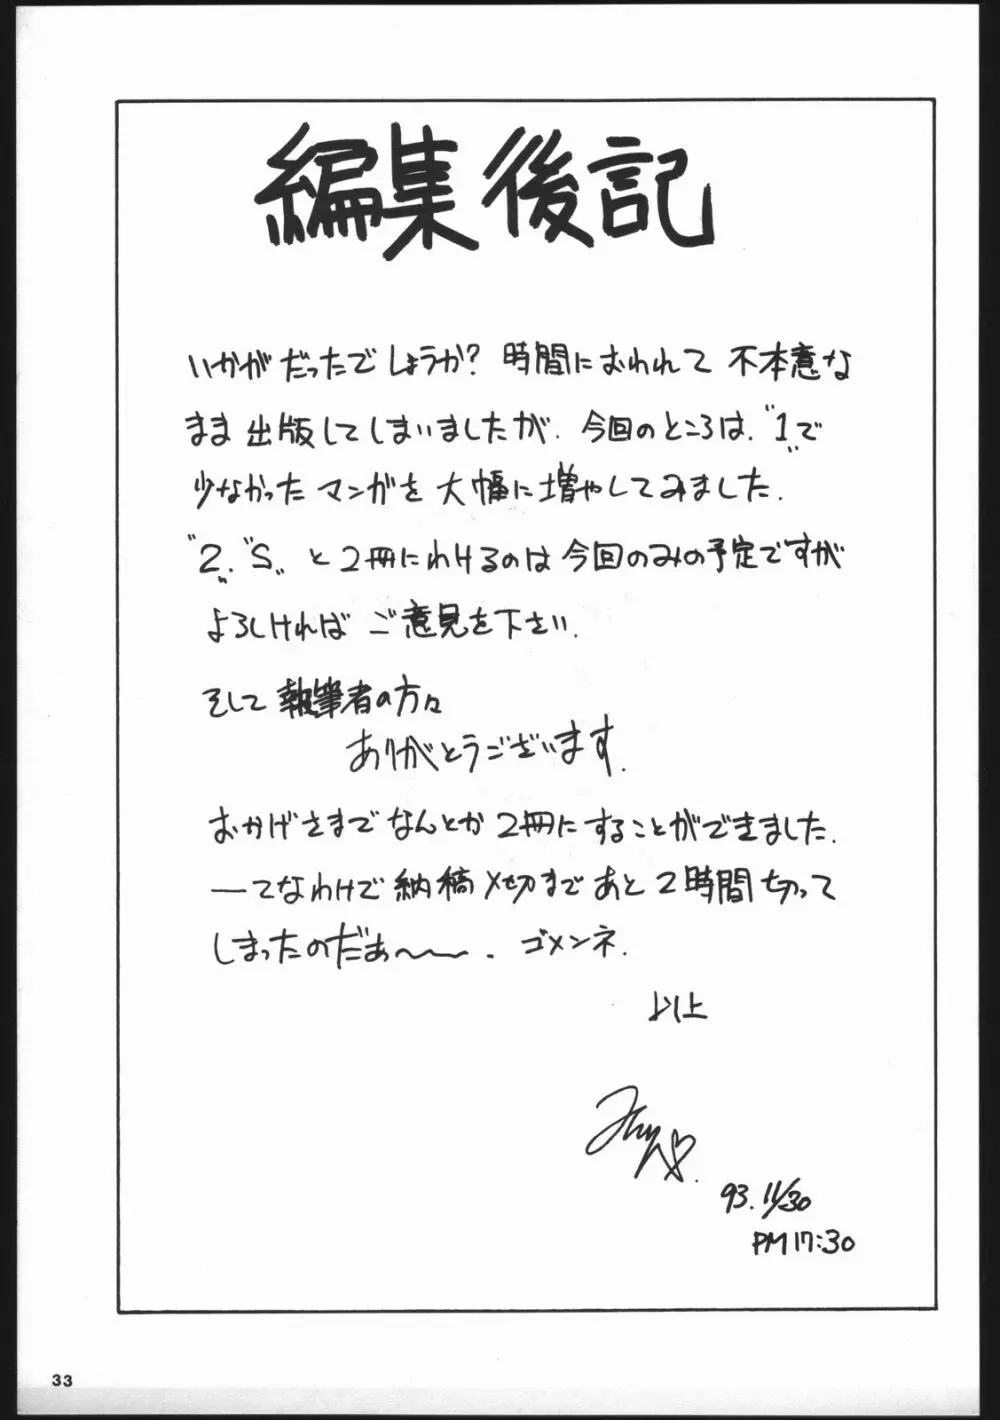 編集後記
いかがだったでしょうか? 時間におわれて 不本意な
まま 出版してしまいましたが. 今回のところは. "1"で
少なかった マンガを 大幅に増やしてみました.
"2". "S" と 2冊にわけるのは 今回のみの予定ですが
よろしければ ご意見を下さい.
そして 執筆者の方々
ありがとうございます.
おかげさまで なんとか 2冊にすることができました.
ーてなわけで 納稿〆切まで あと 2時間 切って
しまったのだぁ〜〜. ゴメンネ.
以上
93. 11/30
PM 17:30
33